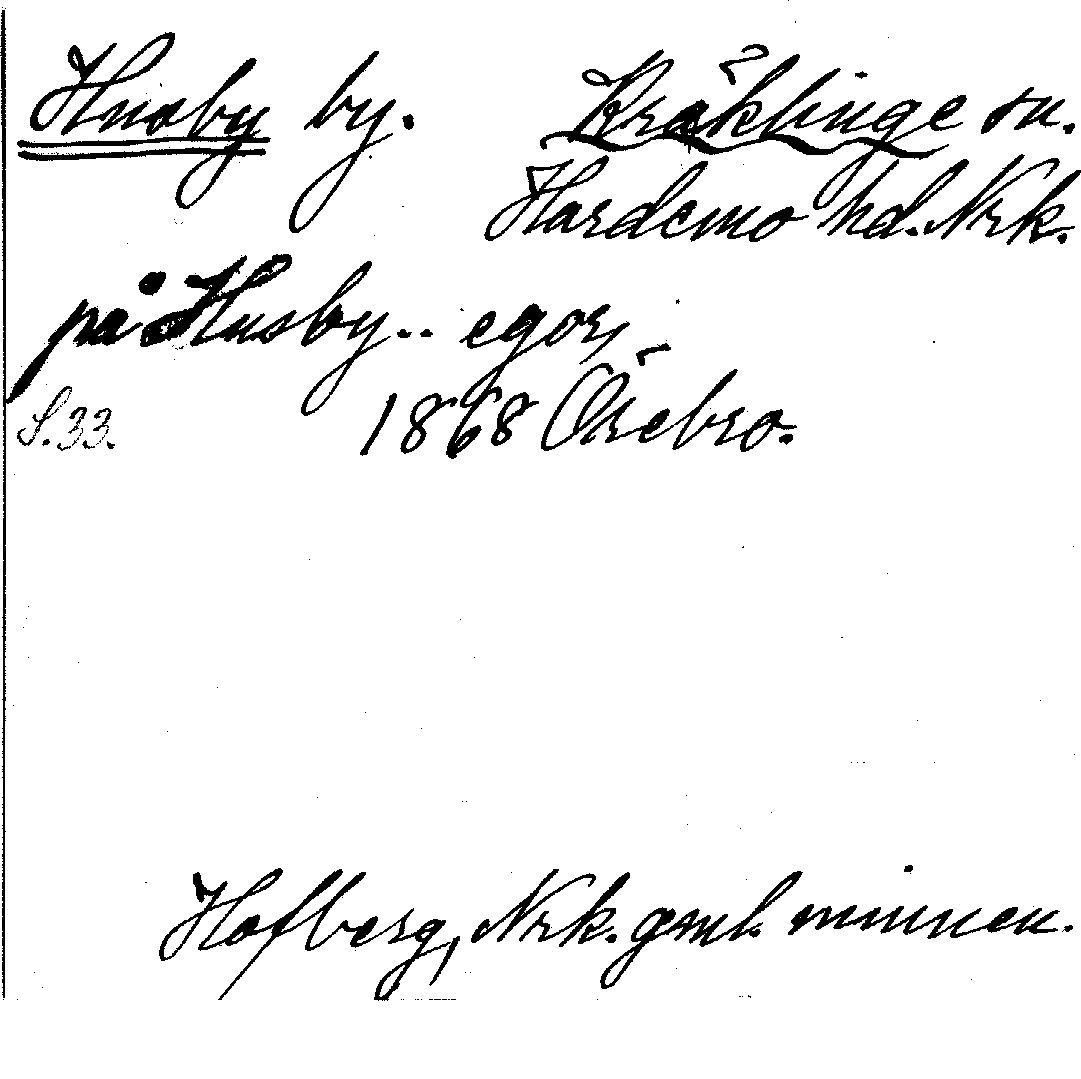 Husby by. Kräklinge sn.
Hardemo hd. Nrk.
på Husby.. egor,
S. 33. 1868 Örebro.
Hofberg, Nrk. gml. minnen.